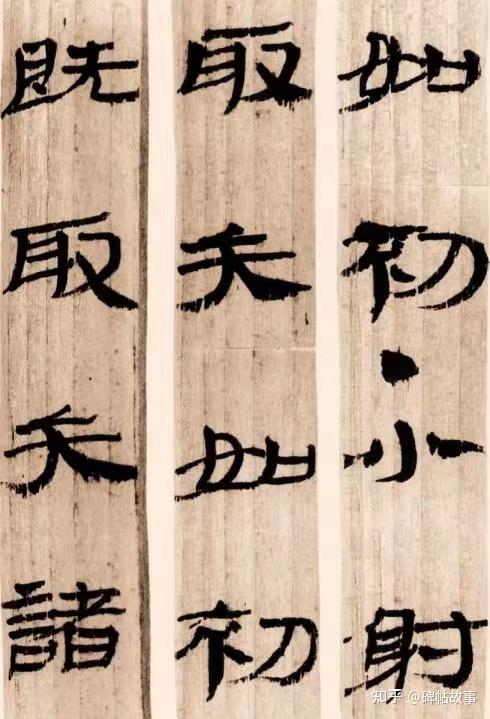 如初•小射
取矢如初
既取矢諸
知乎 @碑帖故事